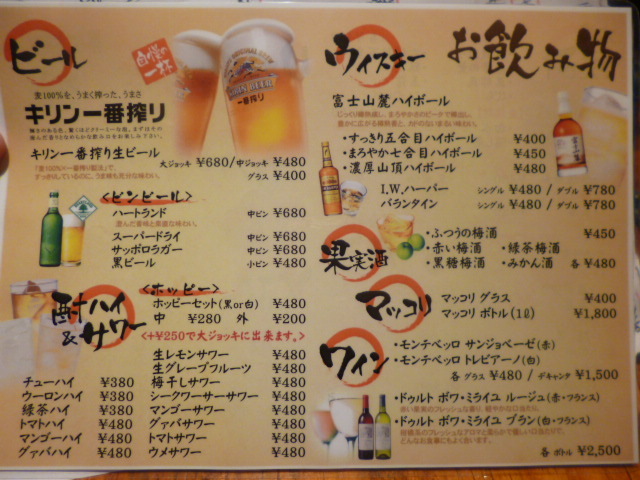 お飲み物
ビール
自慢の
一杯
KIRIN BEER
一番搾り
麦100%を、うまく搾った、うまさ
キリン一番搾り
キリン一番搾り生ビール
大ジョッキ ¥680/中ジョッキ ¥480
グラス ¥400
<ビンビール>
ハートランド 中ビン ¥680
スーパードライ 中ビン ¥680
サッポロラガー 中ビン ¥680
黒ビール 小ビン ¥480
酎ハイ
&サワー
<ホッピー>
ホッピーセット(黒or白) ¥480
中 ¥280 外 ¥200
<+¥250で大ジョッキに出来ます。>
チューハイ ¥380
ウーロンハイ ¥380
緑茶ハイ ¥380
トマトハイ ¥480
マンゴーハイ ¥480
グァバハイ ¥480
生レモンサワー ¥480
生グレープフルーツ ¥480
梅干しサワー ¥480
シークワーサーサワー ¥480
マンゴーサワー ¥480
グァバサワー ¥480
トマトサワー ¥480
ウメサワー ¥480
ウイスキー
富士山麓ハイボール
・すっきり五合目ハイボール ¥400
・まろやか七合目ハイボール ¥450
・濃厚山頂ハイボール ¥480
I.W.ハーパー シングル ¥480 / ダブル ¥780
バランタイン シングル ¥480 / ダブル ¥780
果実酒
・ふつうの梅酒 ¥450
・赤い梅酒 ・緑茶梅酒
・黒糖梅酒 ・みかん酒 各 ¥480
マッコリ
マッコリ グラス ¥400
マッコリ ボトル(1ℓ) ¥1,800
ワイン
・モンテベッロ サンジョベーゼ(赤)
・モンテベッロ トレビアーノ(白)
各 グラス ¥480 / デキャンタ ¥1,500
・ドゥルト ボワ・ミライユ ルージュ(赤・フランス)
赤い果実のフレッシュな香り、軽やかな口当たり。
・ドゥルト ボワ・ミライユ ブラン(白・フランス)
各 ボトル ¥2,500